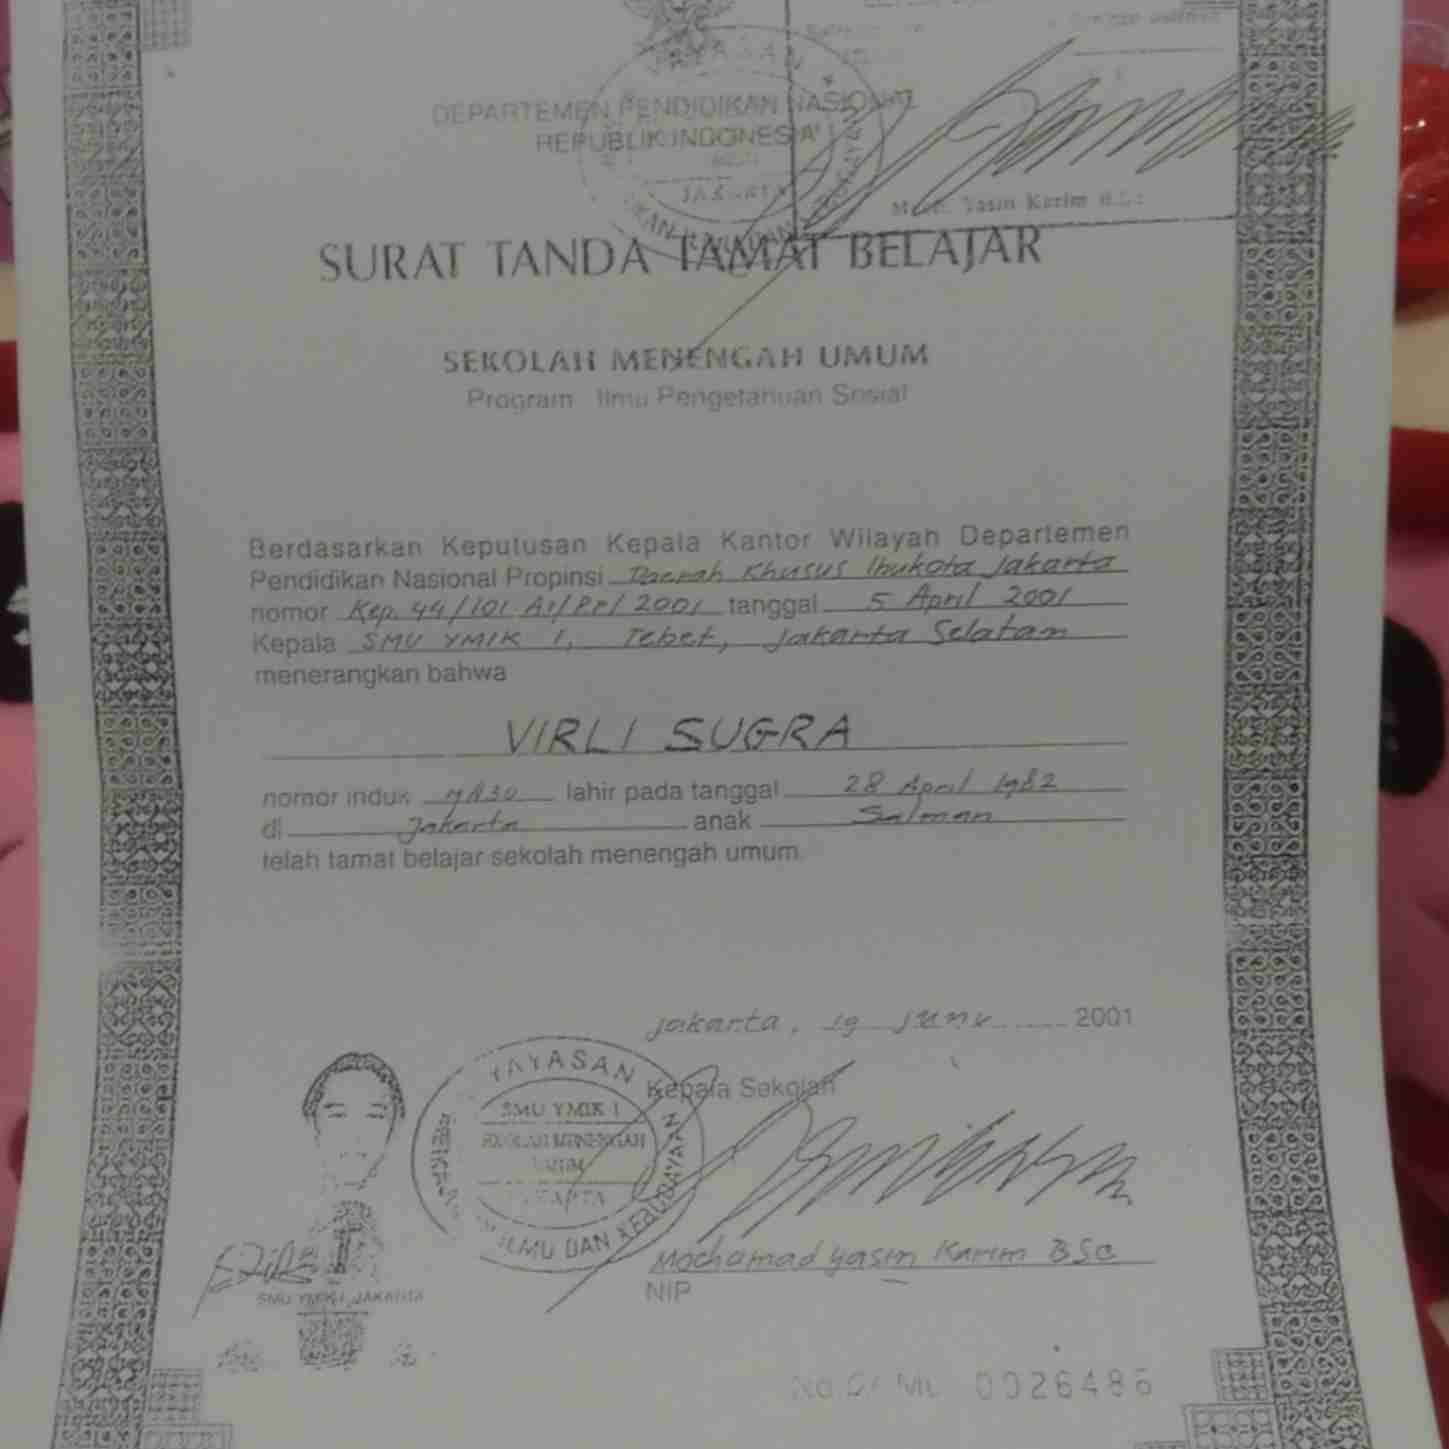 DEPARTEMEN PENDIDIKAN NASIONAL
REPUBLIK INDONESIA
JAKARTA
Yasin Karim
SURAT TANDA TAMAT BELAJAR
SEKOLAH MENENGAH UMUM
Program Ilmu Pengetahuan Sosial
Berdasarkan Keputusan Kepala Kantor Wilayah Departemen
Pendidikan Nasional Propinsi Daerah Khusus Ibukota Jakarta
nomor Kep. 44/101.A1/PP/2001 tanggal 5 April 2001
Kepala SMU YMIK 1, Tebet, Jakarta Selatan
menerangkan bahwa
VIRLI SUGRA
nomor induk lahir pada tanggal 28 April 1982
di Jakarta anak Salman
telah tamat belajar sekolah menengah umum.
Jakarta, 19 Juni 2001
Kepala Sekolah
YAYASAN
SMU YMIK 1
SEKOLAH MENENGAH
UMUM
JAKARTA
ILMU DAN KEBUDAYAAN
Mochamad Yasin Karim BSc
NIP
SMU YMIK I JAKARTA
No. 0026486